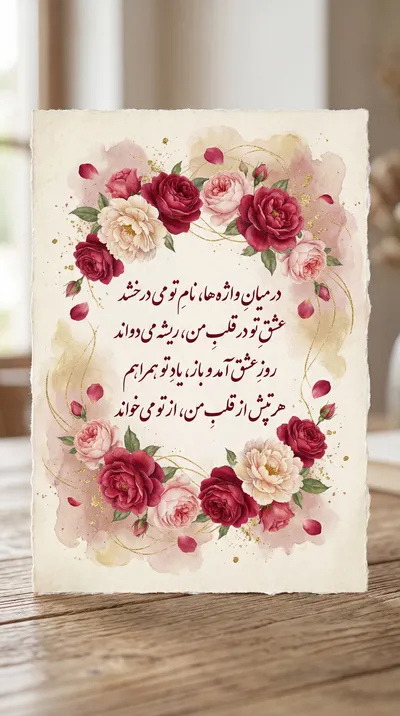 در میانِ واژه‌ها، نامِ تو می درخشد
عشقِ تو در قلبِ من، ریشه می دواند
روزِ عشق آمد و باز، یادِ تو همراهم
هر تپش از قلبِ من، از تو می خواند